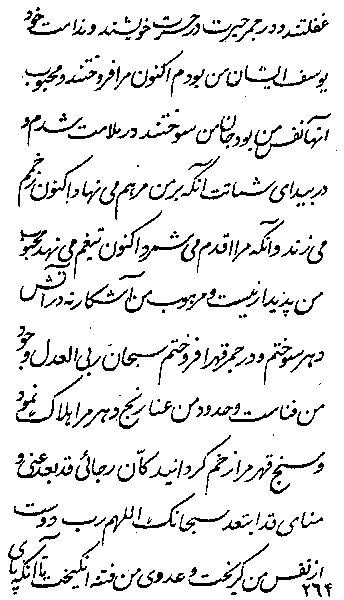 غفلتند و در جمر حیرت در حسرت خویشند و ندامت خود
یوسف ایشان من بودم اکنون مرا فروختند و محبوب
آنها نفس من بود جان من سوختند در ملامت شدم و
در بیدای شماتت آنکه بر من مرهم می نهاد اکنون زخم
می زند و آنکه مرا قدم می شمرد اکنون تیغم می نهد محبوب
من پدیدار نیست و مرهوب من آشکار نه در آتش
دهر سوختم و در جمر قهر افروختم سبحان ربی العدل وجود
من فناست و حدود من عنا رنج دهر مرا هلاک نمود
و سنج قهر مرا زخم گردانید کأن رجائی قد بعد عنی و
منای قد ابتعد سبحانک اللهم رب دوست
از نفس من گریخت و عدوی من فتنه انگیخت تا آنکه پای
۲۶۴